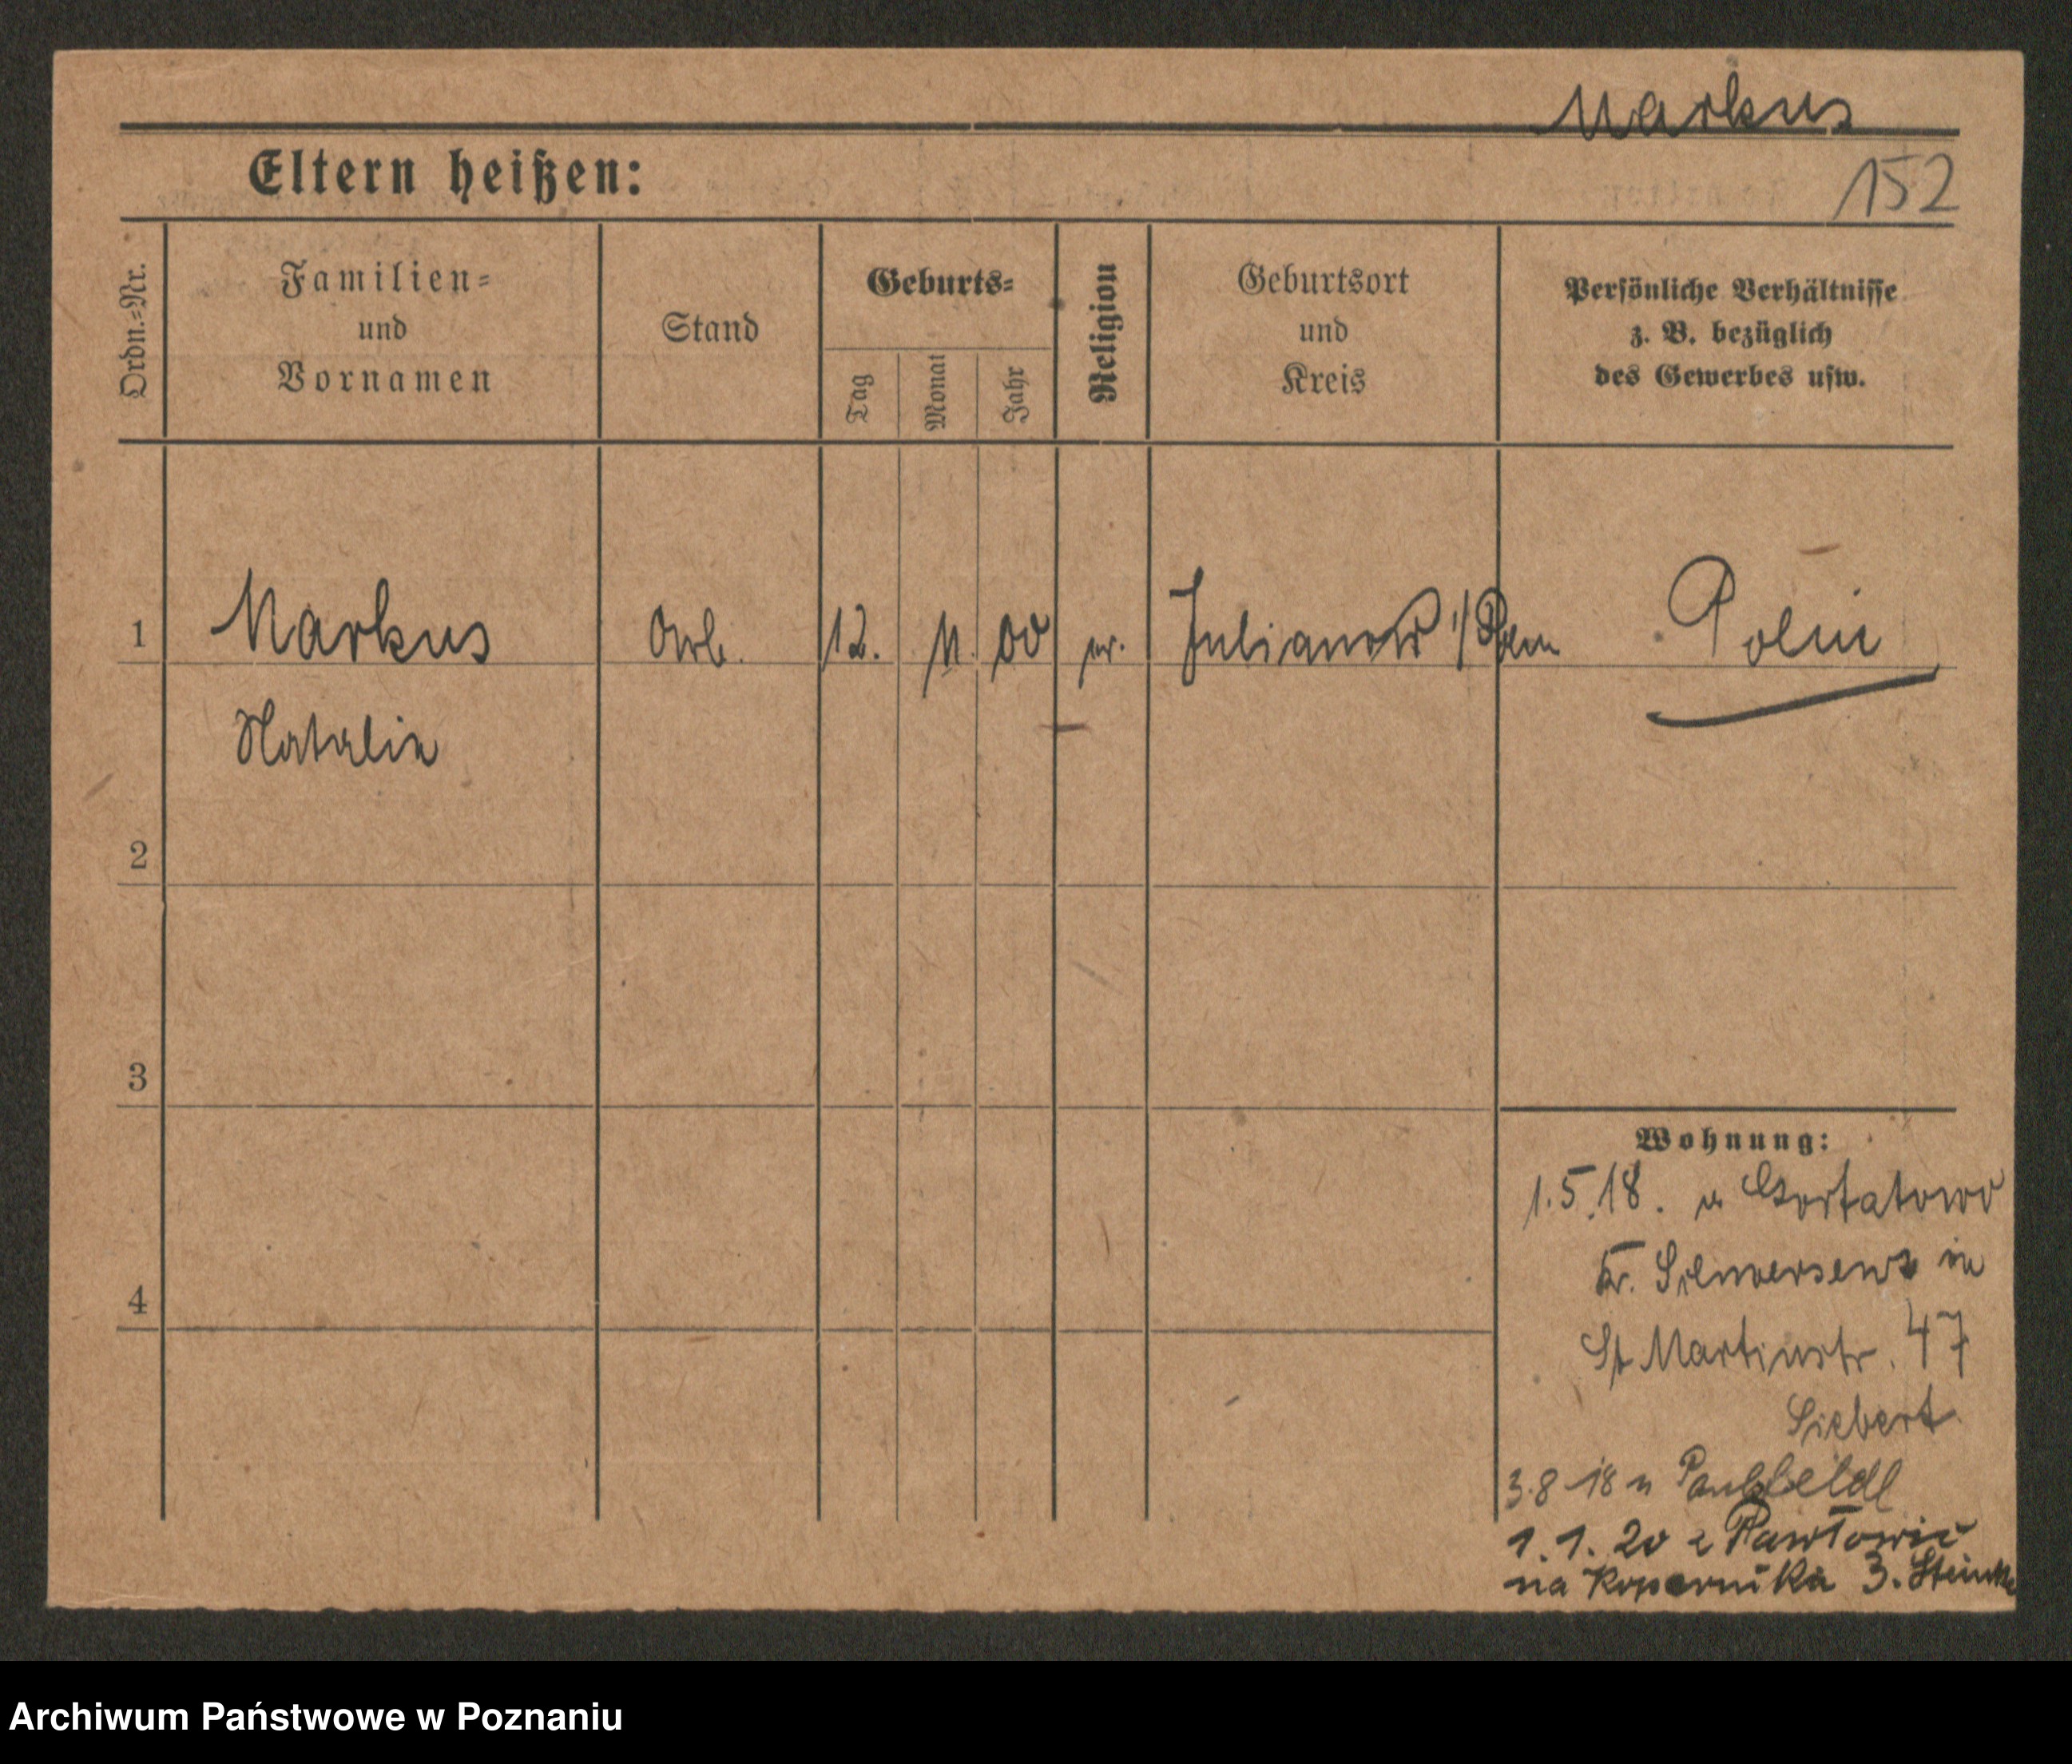 Markus
152
Eltern heißen:
Ordn.-Nr.
Familien-
und
Vornamen
Stand
Geburts-
Tag
Monat
Jahr
Religion
Geburtsort
und
Kreis
Persönliche Verhältnisse
z. B. bezüglich
des Gewerbes usw.
1 Markus Arb. 12. 11. 00 er. Julianow i/Polen Polin
Natalie
2
3
4
Wohnung:
1.5.18. v Gortatowo
Kr. in
St Martinstr. 47
Siebert
3.8 18 n
1.1. 20 z Pawłowic
na Kopernika 3.
Archiwum Państwowe w Poznaniu